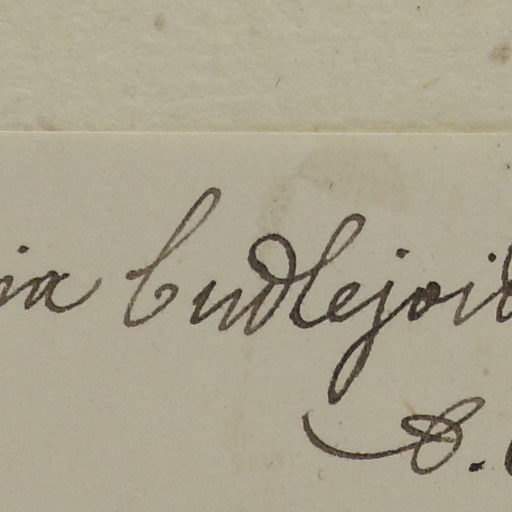 ia budlejoid